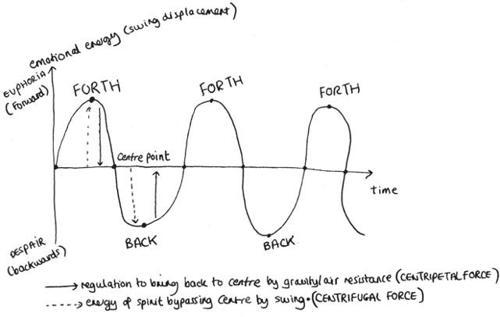 emotional energy (swing displacement)
EUPHORIA
(Forward)
FORTH
FORTH
FORTH
Centre point
time
BACK
BACK
DESPAIR
(backwards)
regulation to bring back to centre by gravity/air resistance (CENTRIPETAL FORCE)
energy of spirit bypassing centre by swing. (CENTRIFUGAL FORCE)